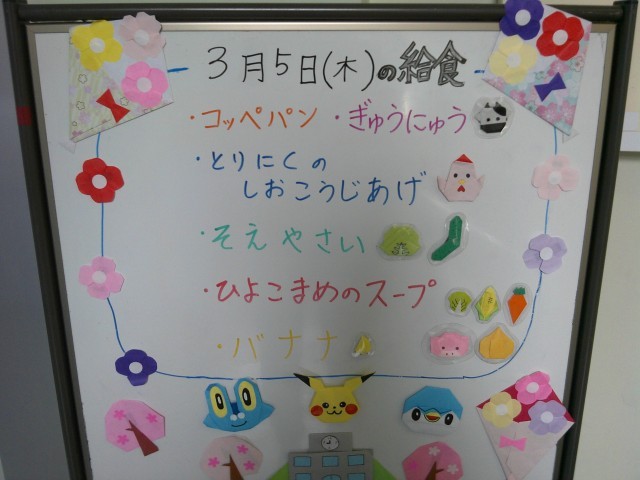 3月5日(木)の給食
・コッペパン ・ぎゅうにゅう
・とりにくの
しおこうじあげ
・そえやさい
・ひよこまめのスープ
・バナナ